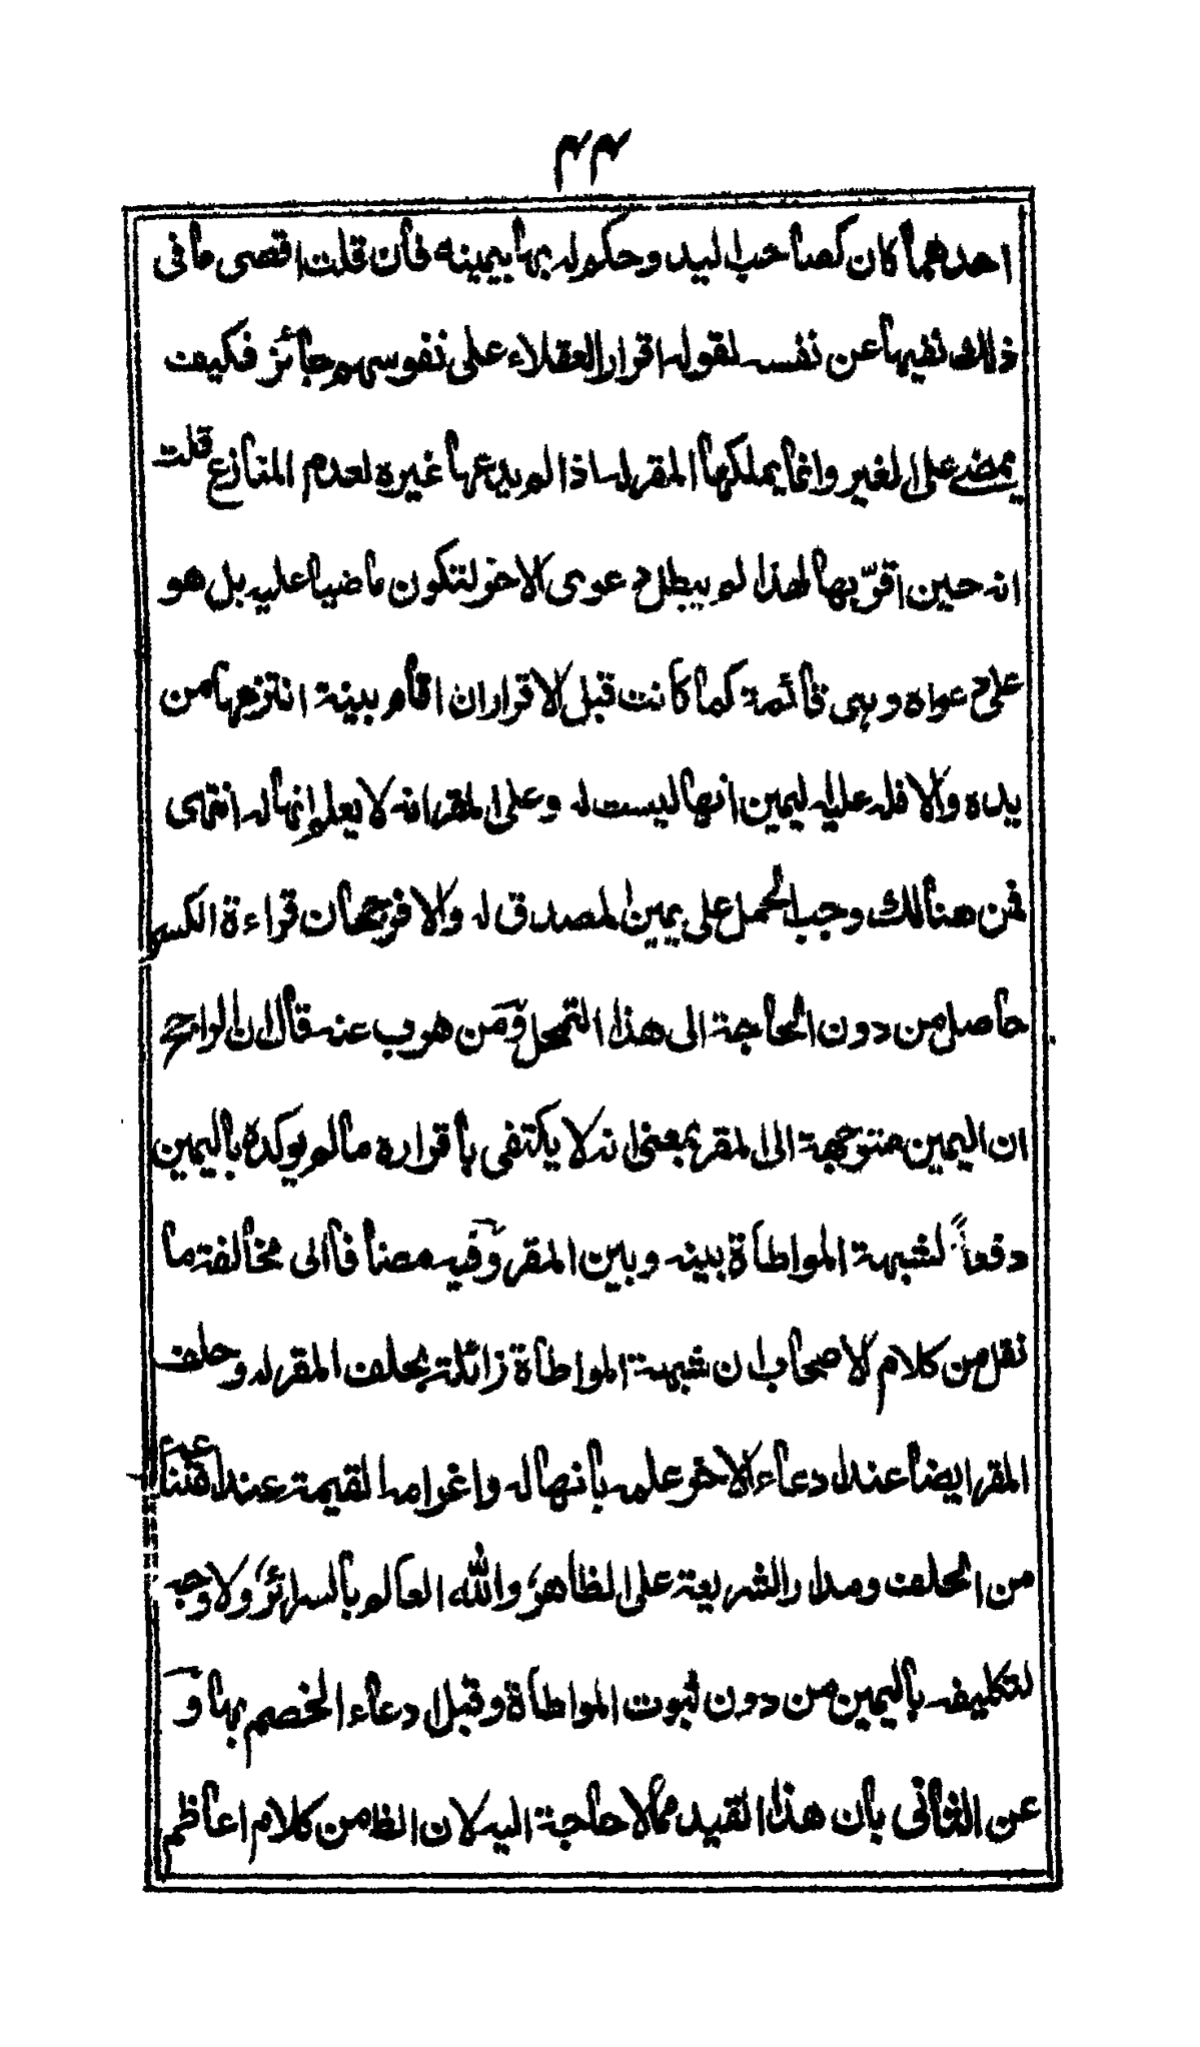 ۴۴
احدهما كان كصاحب اليد وحكم له بها بيمينه فان قلت اقصى ما فى
ذلك نفيها عن نفسه لقوله اقرار العقلاء على نفوسهم جائز فكيف
يمضے على الغير وانما يملكها المقر له اذا لم يدعها غيره لعدم المنازع قلت
انه حين اقرّ بها لهذا لم يبطل دعوى الاخر لتكون ماضيا عليه بل هو
على دعواه وهى قائمة كما كانت قبل الاقرار ان اقام بينة انتزعها من
يده والا فله عليه اليمين انها ليست له وعلى المقر انه لا يعلم انها له انتهى
فمن هنالك وجب الحمل على يمين المصدق له والا فرجحان قراءة الكسر
حاصل من دون الحاجة الى هذا التمحل ومن هرب عنه قال ان الراجح
ان اليمين متوجهة الى المقر بمعنى انه لا يكتفى باقراره ما لم يوكده باليمين
دفعاً لشبهة المواطاة بينه وبين المقر وفيه مضافا الى مخالفته ما
نقل من كلام الاصحاب ان شبهة المواطاة زائلة بحلف المقر له وحلف
المقر ايضا عند ادعاء الاخر علمه بانها له واغرامه القيمة عند امتناعه
من الحلف ومدار الشريعة على الظاهر، والله العالم بالسرائر، ولا وجه
لتكليفه باليمين من دون ثبوت المواطاة وقبل ادعاء الخصم بها و
عن الثانى بان هذا القيد مما لا حاجة اليه لان الظا من كلام اعاظم